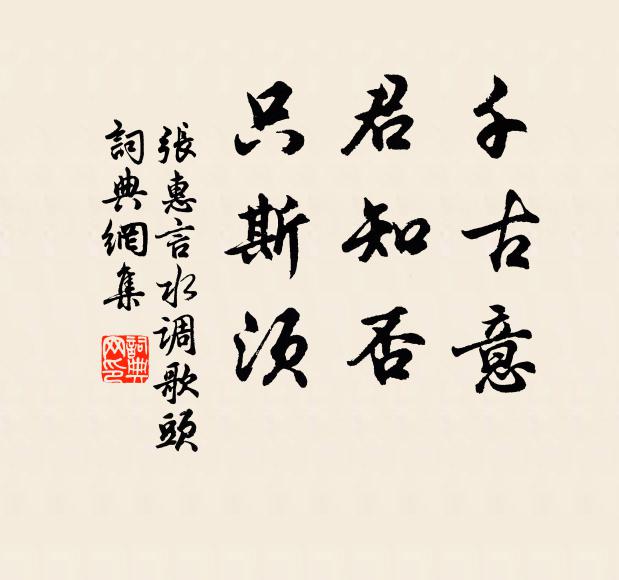 千古意
君知否
只斯須
張惠言水调歌頭
詞典網集
詞典
网印